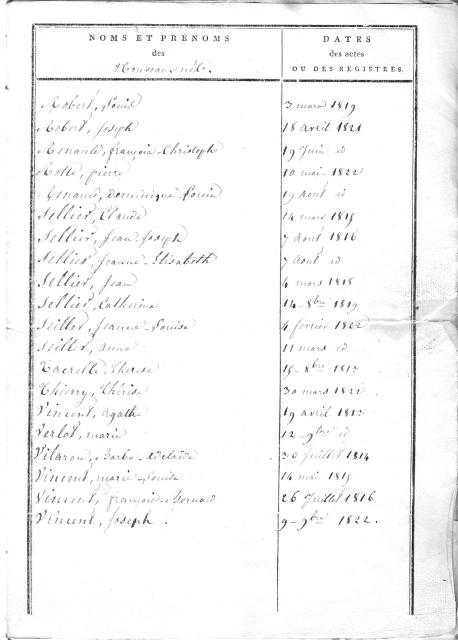 NOMS ET PRÉNOMS
des
Nouveaux nés.
DATES
des actes
OU DES REGISTRES.
Robert, Louis 3 mars 1819
Robert, Joseph 18 avril 1821
Renault, françois-Christophe 19 Juin id
Rolle, pierre 10 mai 1822
Renauld, dominique-Louis 19 Août id
Sellier, Claude 14 mars 1815
Sellier, Jean-Joseph 7 Août 1816
Sellier, Jeanne-Elisabeth 7 Août id
Sellier, Jean 4 mars 1818
Sellier, Catherine 14-8bre 1819
Seiller, Jeanne-Louise 4 février 1822
Seiller, anne 11 mars id
Therese 15-8bre 1813
Thierry, Thérèse 30 mars 1822
Vincent, agathe 19 avril 1813
Verlot, marie 12-9bre id
Vilaron, Barbe-Adelaïde 30 Juillet 1814
Vincent, marie-Louise 14 mai 1815
Vincent, françois-Bernard 26 Juillet 1816
Vincent, Joseph. 9-9bre 1822.